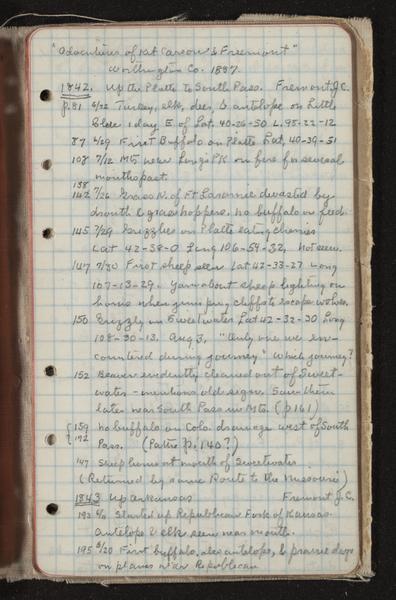 "Adventures of Kit Carson & Freemont"
Worthington Co. 1887.
1842. Up the Platte to South Pass. Fremont, J.C.
p. 81 6/22 Turkey, elk, deer, & antelope on Little
Blue 1 day E of Lat. 40-26-50 L. 98-22-12
87 6/29 First Buffalo on Platte Lat, 40-39-51
108 7/12 Mts near Long's PK on fire for several
months past.
138
142 7/26 Grass N. of Ft Laramie devasted by
drouth & grasshoppers. No buffalo or feed.
145 7/29 Grizzlies on Platte eating cherries
Lat 42-38-0 Long 106-54-32, not seen.
147 7/30 First sheep seen Lat 42-33-27 Long
107-13-29. Yarn about sheep lighting on
horns when jumping cliffs to escape wolves.
150 Grizzly on Sweetwater Lat 42-32-30 Long
108-30-13. Aug 3, "Only one we en-
countered during journey" Which journey?
152 Beaver evidently cleaned out of Sweet-
water - mentions old signs. Saw them
later near South Pass in Mts. (p 161)
{159 No buffalo on Colo. drainage west of South
{192 Pass. (Pattie p. 140?)
147 Sheep horns at mouth of Sweetwater
(Returned by same Route to the Missouri)
1843 Up Arkansas Fremont J.C.
193 Started up Republican Fork of Kansas
Antelope & elk seen near mouth.
195 6/20 First buffalo, also antelope, & prairie dogs
on plains near Republican